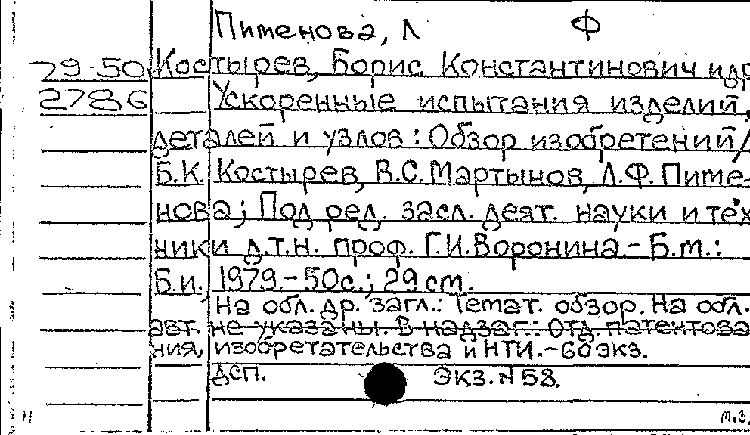 Пименова, Л Ф
79-50 Костырев, Борис Константинович и др
2786 Ускоренные испытания изделий,
деталей и узлов: Обзор изобретений/
Б.К. Костырев, В.С. Мартынов, Л.Ф. Пиме-
нова; Под ред. засл. деят. науки и тех
ники д.т.н. проф. Г.И. Воронина.- Б.м.:
Б.и., 1979.- 50с.; 29 см.
На обл. др. загл.: Темат. обзор. На обл.
авт. не указаны. В надзаг.: Отд. патентова
ния, изобретательства и НТИ.- 60 экз.
ДСП. Экз. N 58.
Н м.з.